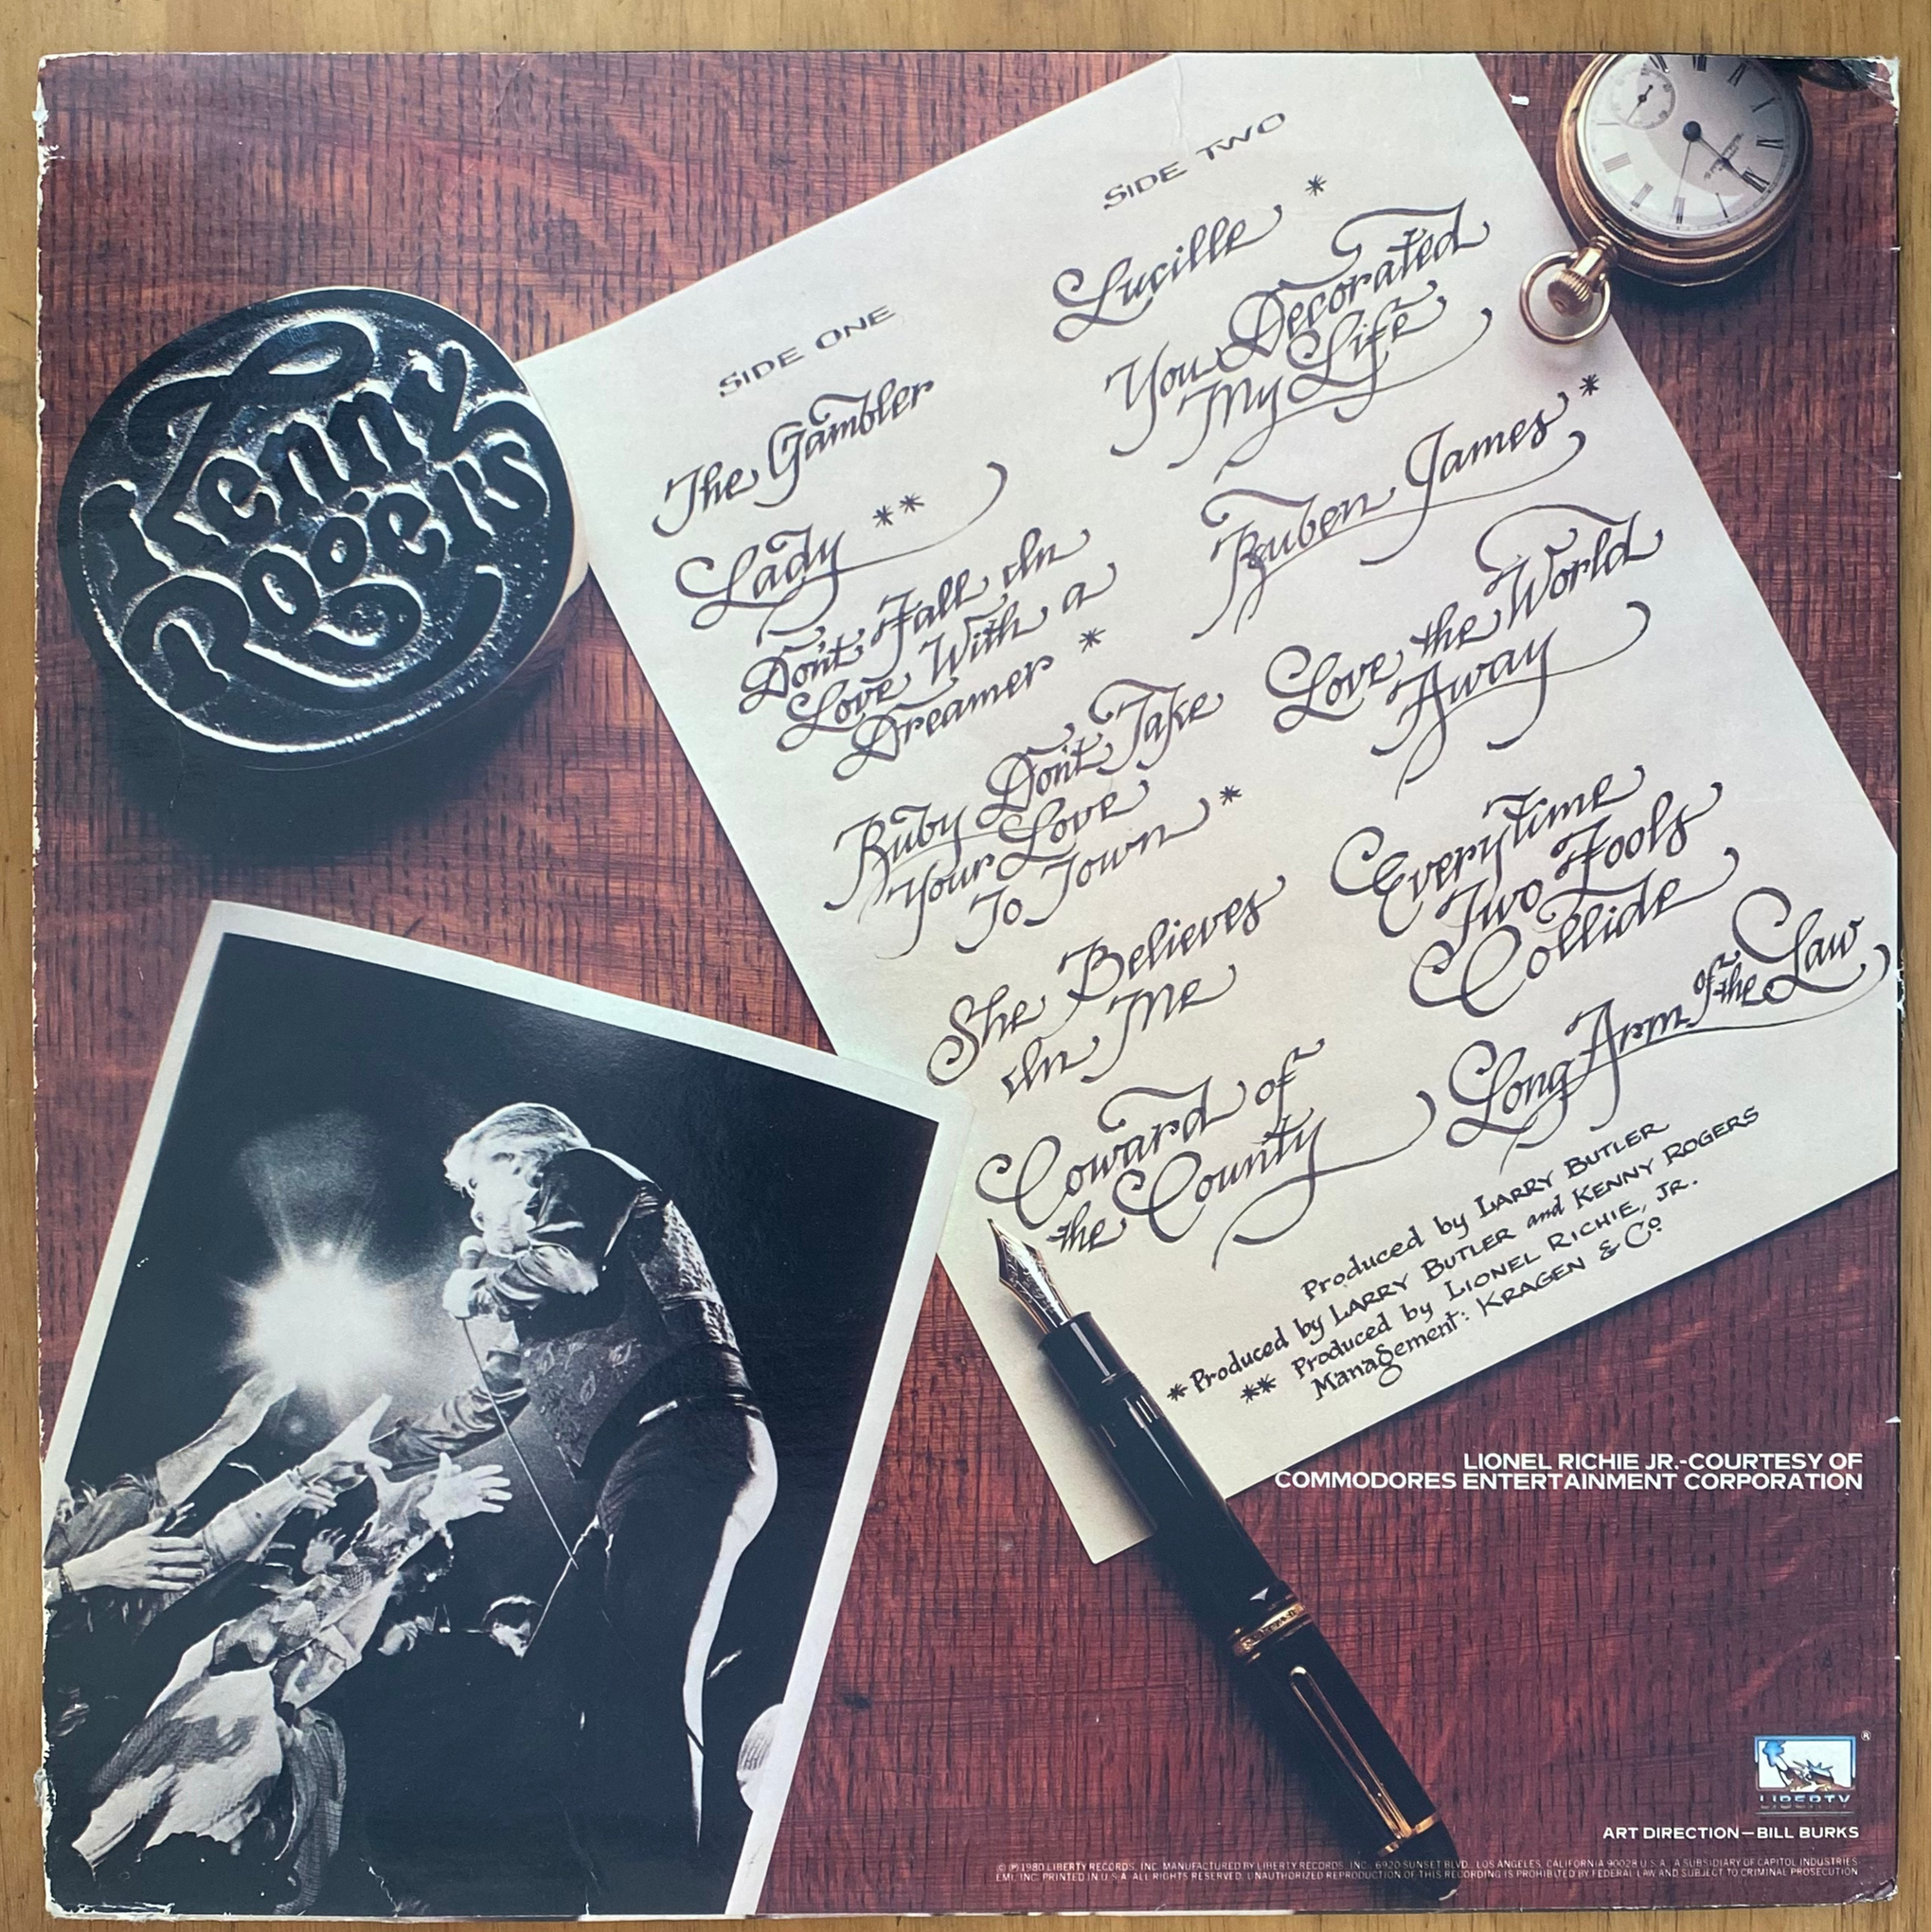 Kenny
Rogers
SIDE ONE
The Gambler
Lady **
Don't Fall In
Love With a
Dreamer *
Ruby Don't Take
Your Love
To Town *
She Believes
In Me
Coward of
the County
SIDE TWO
Lucille *
You Decorated
My Life
Ruben James *
Love the World
Away
Everytime
Two Fools
Collide
Long Arm of the Law
Produced by LARRY BUTLER
*Produced by LARRY BUTLER and KENNY ROGERS
** Produced by LIONEL RICHIE, JR.
Management: KRAGEN & Co
LIONEL RICHIE JR.-COURTESY OF
COMMODORES ENTERTAINMENT CORPORATION
®
LIBERTY
ART DIRECTION—BILL BURKS
© ℗ 1980 LIBERTY RECORDS, INC. MANUFACTURED BY LIBERTY RECORDS, INC., 6920 SUNSET BLVD., LOS ANGELES, CALIFORNIA 90028 U.S.A. A SUBSIDIARY OF CAPITOL INDUSTRIES
EMI, INC. PRINTED IN U.S.A. ALL RIGHTS RESERVED. UNAUTHORIZED REPRODUCTION OF THIS RECORDING IS PROHIBITED BY FEDERAL LAW AND SUBJECT TO CRIMINAL PROSECUTION